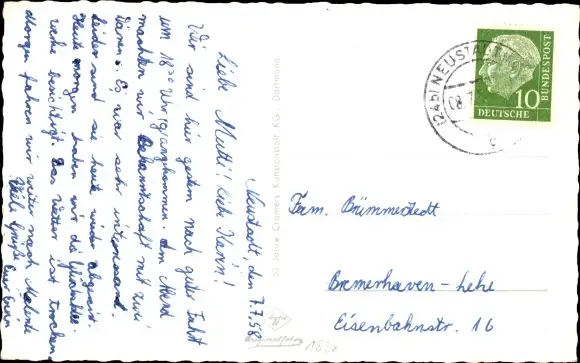 Neustadt, den 7.7.58
Liebe Mutti! Liebe Karin!
Wir sind hier gestern nach guter Fahrt
um 18³⁰ Uhr angekommen. Am Abend
machten wir Bekanntschaft mit zwei
Dänen. Es war sehr interessant
leider sind sie heute wieder abgereist.
Heute morgen haben wir die
werke besichtigt. Das Wetter ist trocken
Morgen fahren wir weiter nach
Viele Grüße
Fam. Brümmerstedt
Bremerhaven-Lehe
Eisenbahnstr. 16
50 Jahre Cramers Kunstanstalt KG., Dortmund
(24b) NEUSTADT
08.7
g
10
DEUTSCHE
BUNDESPOST
Agfa